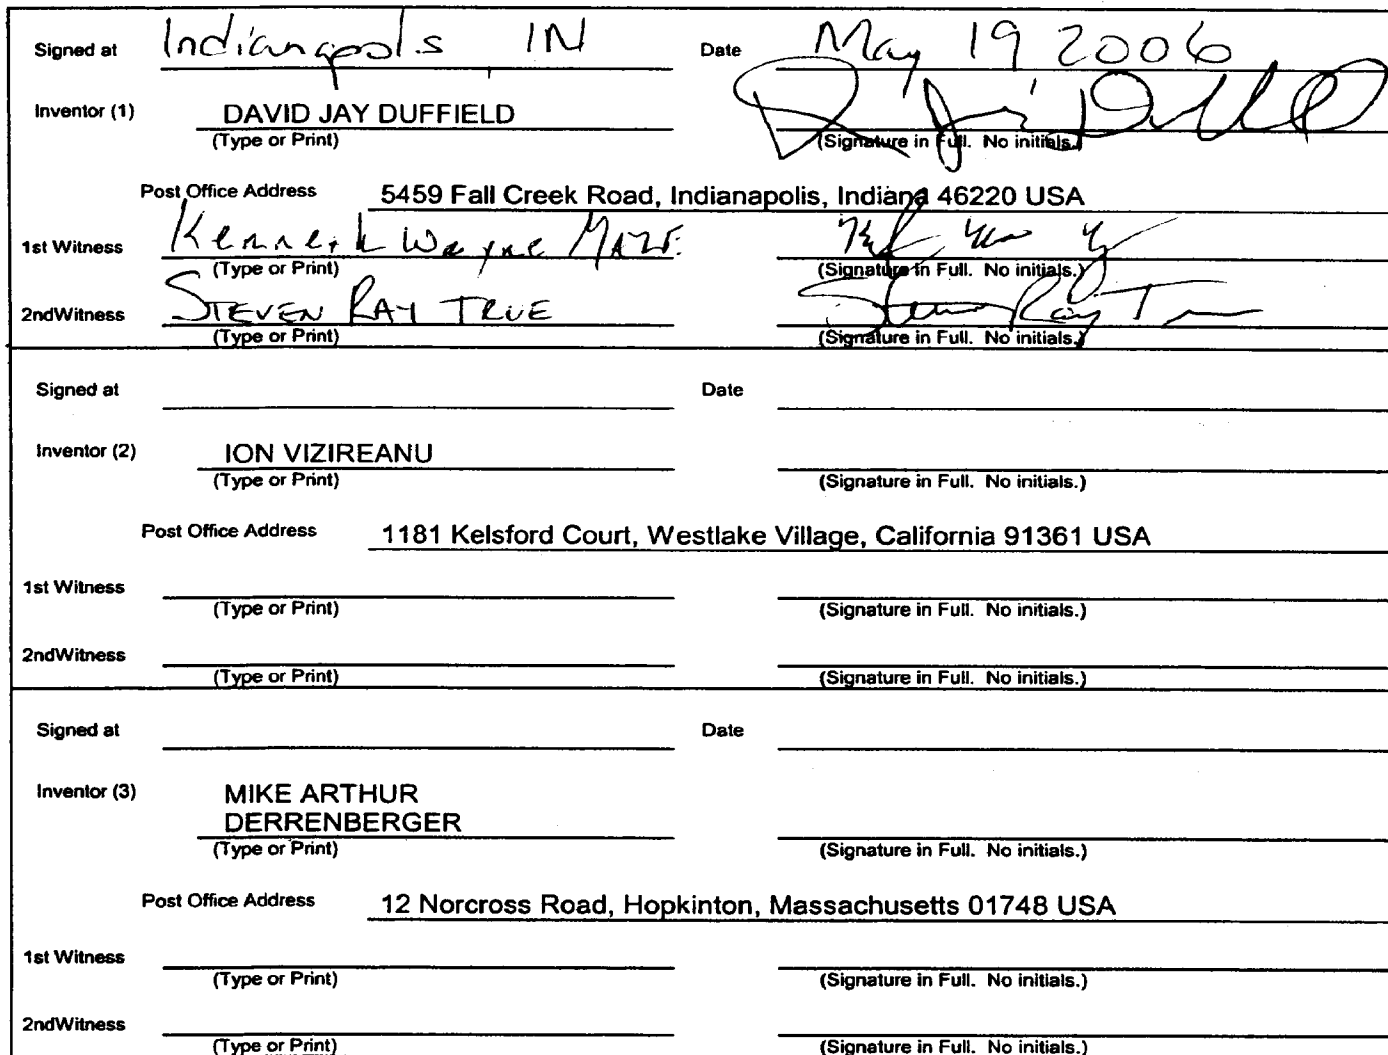 Signed at Indianapolis IN Date May 19 2006
Inventor (1) DAVID JAY DUFFIELD
(Type or Print) (Signature in Full. No initials.)
Post Office Address 5459 Fall Creek Road, Indianapolis, Indiana 46220 USA
1st Witness Kenneth Wayne
(Type or Print) (Signature in Full. No initials.)
2ndWitness STEVEN RAY TRUE Steven Ray
(Type or Print) (Signature in Full. No initials.)
Signed at Date
Inventor (2) ION VIZIREANU
(Type or Print) (Signature in Full. No initials.)
Post Office Address 1181 Kelsford Court, Westlake Village, California 91361 USA
1st Witness
(Type or Print) (Signature in Full. No initials.)
2ndWitness
(Type or Print) (Signature in Full. No initials.)
Signed at Date
Inventor (3) MIKE ARTHUR
DERRENBERGER
(Type or Print) (Signature in Full. No initials.)
Post Office Address 12 Norcross Road, Hopkinton, Massachusetts 01748 USA
1st Witness
(Type or Print) (Signature in Full. No initials.)
2ndWitness
(Type or Print) (Signature in Full. No initials.)